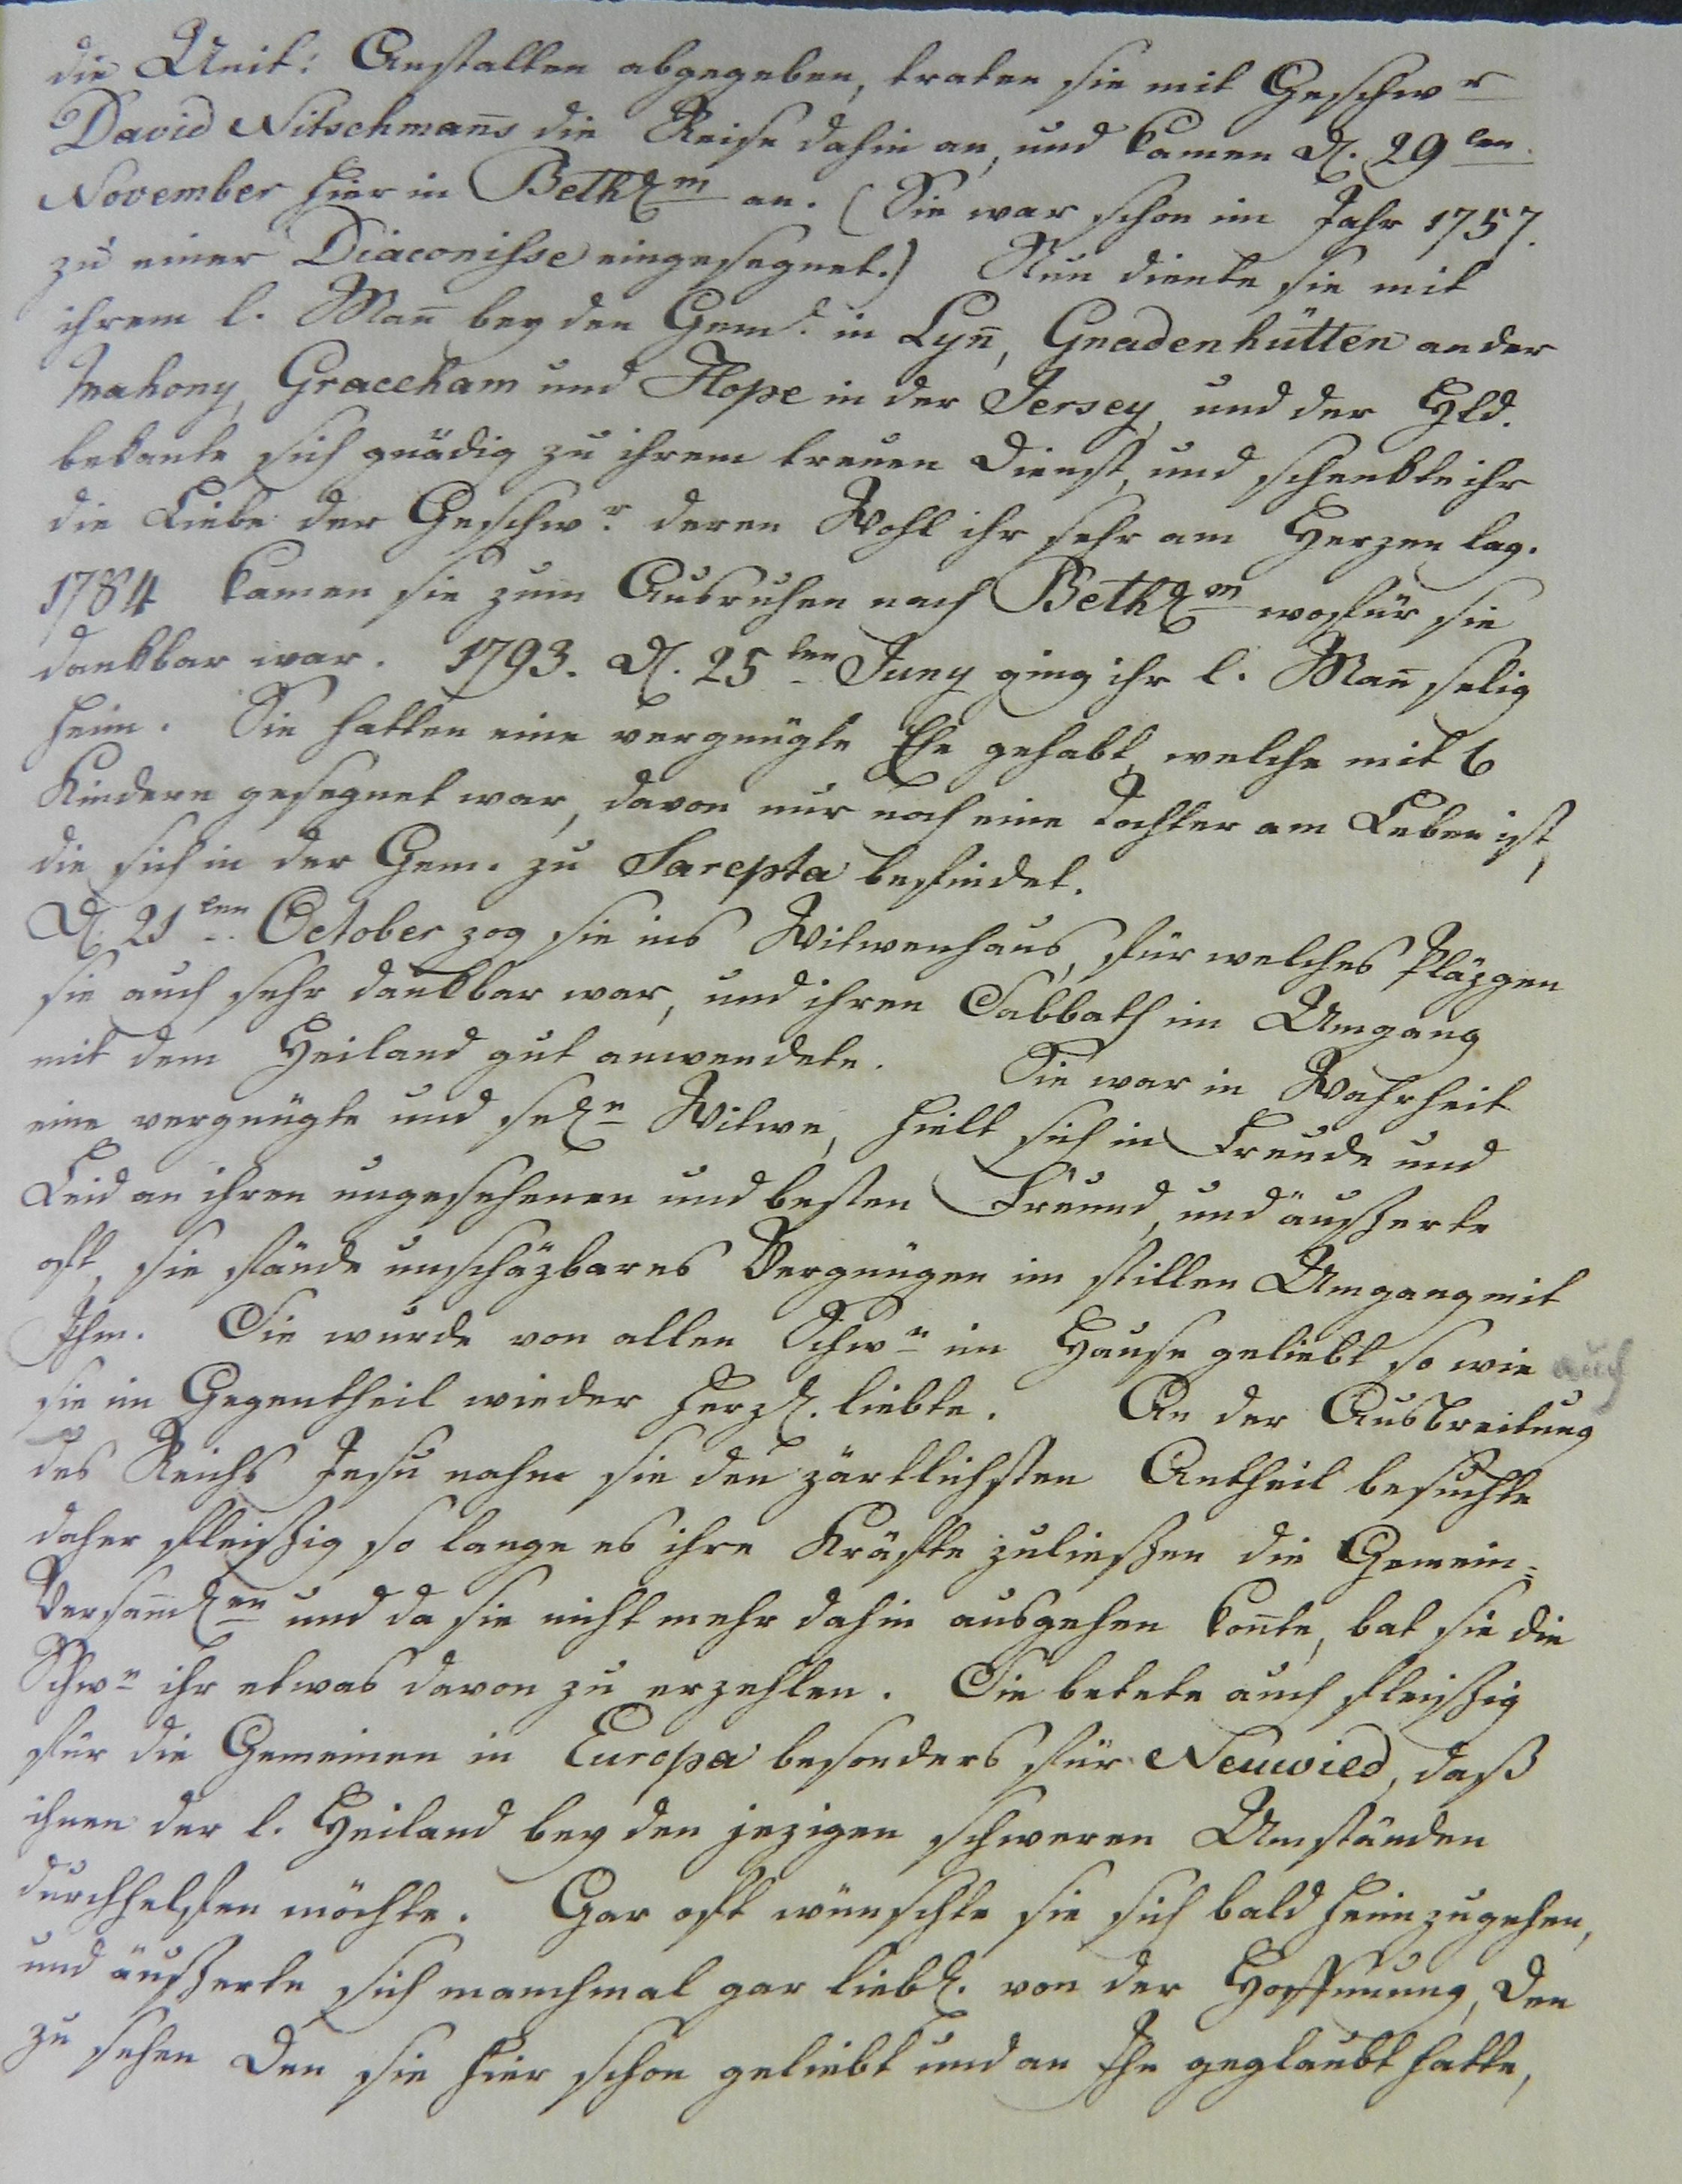 die Unit: Anstalten abgegeben, traten sie mit Geschwr
David Nitschmanns die Reise dahin an, und kamen d. 29ten
November hier in Bethlm an. (Sie war schon im Jahr 1757.
zu einer Diaconisse eingesegnet.) Nun diente sie mit
ihrem l. Mann bey den Gemd. in Lynn, Gnadenhütten an der
Mahony, Graceham und Hope in der Jersey, und der Hld.
bekante sich gnädig zu ihrem treuen Dienst, und schenkte ihr
die Liebe der Geschwr. deren Wohl ihr sehr am Herzen lag.
1784 kamen sie zum Ausruhen nach Bethlm wofür sie
dankbar war. 1793. d. 25ten Juny ging ihr l. Mann selig
heim. Sie hatten eine vergnügte Ehe gehabt, welche mit 6
Kindern gesegnet war, davon nur noch eine Tochter am Leben ist,
die sich in der Gem. zu Sarepta befindet.
D. 21ten October zog sie ins Witwenhaus, für welches Pläzgen
sie auch sehr dankbar war, und ihren Sabbath im Umgang
mit dem Heiland gut anwendete. Sie war in Wahrheit
eine vergnügte und sele Witwe, hielt sich in Freude und
Leid an ihren ungesehenen und besten Freund, und äußerte
oft, sie fände unschäzbares Vergnügen im stillen Umgang mit
Ihm. Sie wurde von allen Schwn im Hause geliebt so wie auch
sie im Gegentheil wieder herzl. liebte. An der Ausbreitung
des Reichs Jesu nahm sie den zärtlichsten Antheil besuchte
daher fleißig so lange es ihre Kräfte zuließen die Gemein-
Versamlen und da sie nicht mehr dahin ausgehen konte, bat sie die
Schwn ihr etwas davon zu erzehlen. Sie betete auch fleißig
für die Gemeinen in Europa besonders für Neuwied, daß
ihnen der l. Heiland bey den jezigen schweren Umständen
durchhelfen möchte. Gar oft wünschte sie sich bald heimzugehen,
und äußerte sich manchmal gar liebl. von der Hoffnung, Den
zu sehen Den sie hier schon geliebt und an Ihn geglaubt hatte,